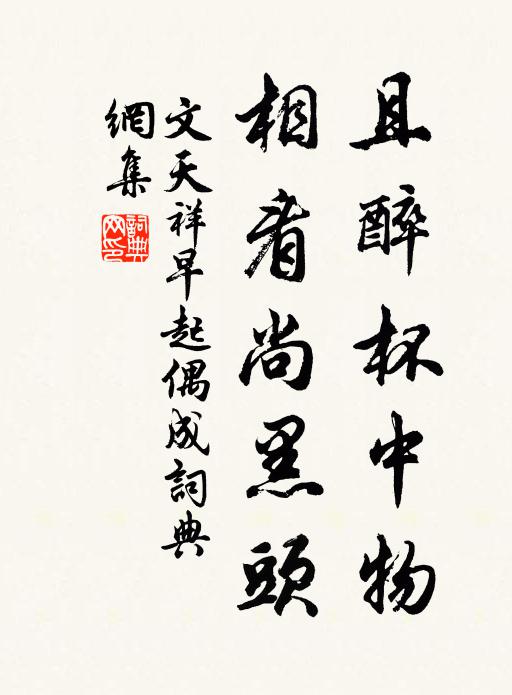 且醉杯中物
相看尚黑頭
文天祥早起偶成詞典
網集
詞典網印